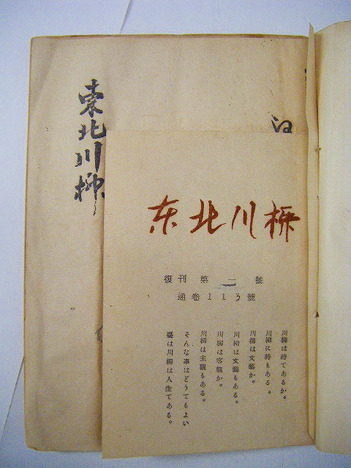 東北川柳
东北川柳
復刊第二號
通巻113號
川柳は詩であるか。
川柳に詩もある。
川柳は文藝か。
川柳は文藝もある。
川柳は客觀か。
川柳は主觀もある。
そんな事はどうでもよい
要は川柳は人生である。